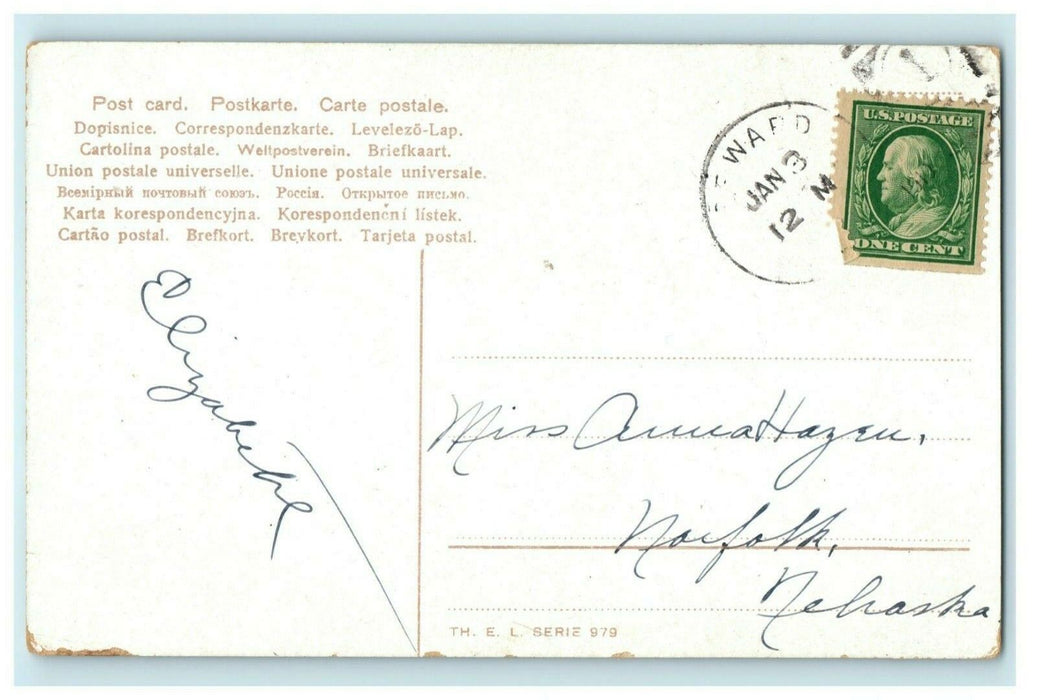 Post card. Postkarte. Carte postale.
Dopisnice. Correspondenzkarte. Levelező-Lap.
Cartolina postale. Weltpostverein. Briefkaart.
Union postale universelle. Unione postale universale.
Всемірный почтовый союзъ. Россія. Открытое письмо.
Karta korespondencyjna. Korespondenční lístek.
Cartão postal. Brefkort. Brevkort. Tarjeta postal.
SEWARD
JAN 3
12 M
1
U.S.POSTAGE
ONE CENT
Elizabeth
Miss Anna Hazen.
Norfolk,
Nebraska
TH. E. L. SERIE 979